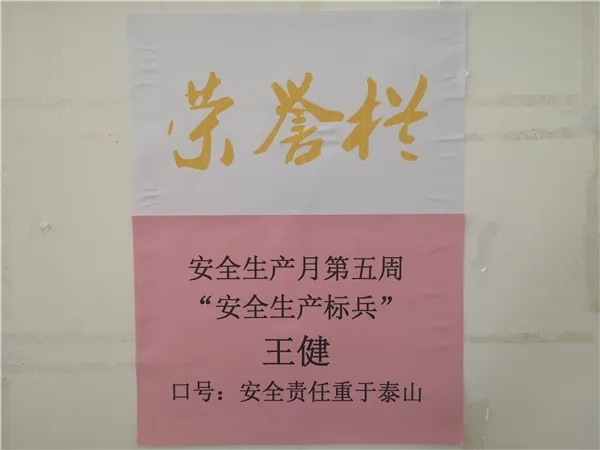 荣誉栏
安全生产月第五周
“安全生产标兵”
王健
口号：安全责任重于泰山